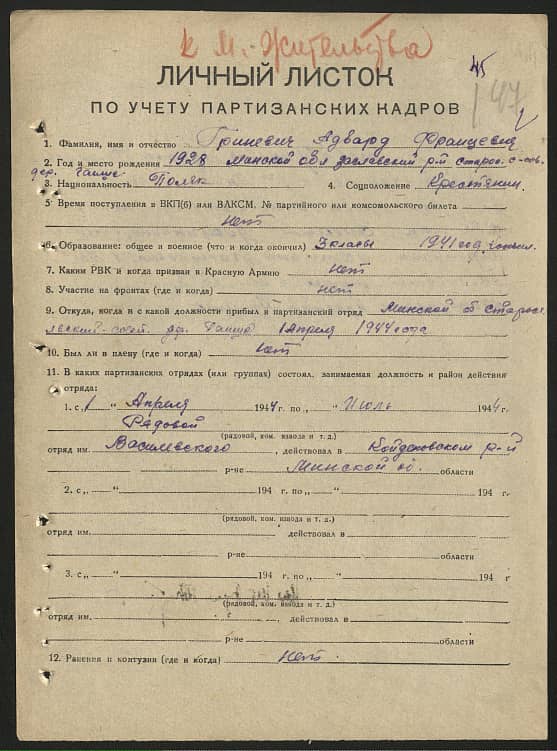 к м. жительства
45
147
ЛИЧНЫЙ ЛИСТОК
ПО УЧЕТУ ПАРТИЗАНСКИХ КАДРОВ
1. Фамилия, имя и отчество Гриневич Адвард Францевич
2. Год и место рождения 1928 Минской обл Заславский р-й старос. с-сов.
дер. Гатще
3. Национальность Поляк 4. Соцположение Крестянин.
5. Время поступления в ВКП(б) или ВЛКСМ, № партийного или комсомольского билета
нет
6. Образование: общее и военное (что и когда окончил) 3 класы 1941 год
7. Каким РВК и когда призван в Красную Армию нет
8. Участие на фронтах (где и когда) нет
9. Откуда, когда и с какой должности прибыл в партизанский отряд Минской о старос
1 Апреля 1944 года
10. Был ли в плену (где и когда) нет
11. В каких партизанских отрядах (или группах) состоял, занимаемая должность и район действия
отряда:
1. с „1" Апреля 1944 г. по „ " Июль 1944 г.
Рядовой
(рядовой, ком. взвода и т. д.)
отряд им. Василевского, действовал в Койдановском р-й
р-не Минской о. области
2. с „ " 194 г. по „ " 194 г.
(рядовой, ком. взвода и т. д.)
отряд им. действовал в
р-не области
3. с „ " 194 г. по „ " 194 г
(рядовой, ком. взвода и т. д.)
отряд им. , действовал в
р-не области
12. Ранения и контузии (где и когда) нет.